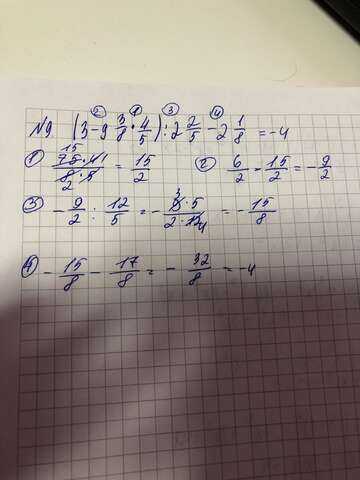 ② ① ③ ④
№9 (3 - 9 3/8 · 4/5) : 2 2/5 - 2 1/8 = -4
15
① 75·41/8·5 = 15/2 ② 6/2 - 15/2 = -9/2
2
③ -9/2 : 12/5 = - 9·5/2·12 = -15/8
④ -15/8 - 17/8 = - 32/8 = -4